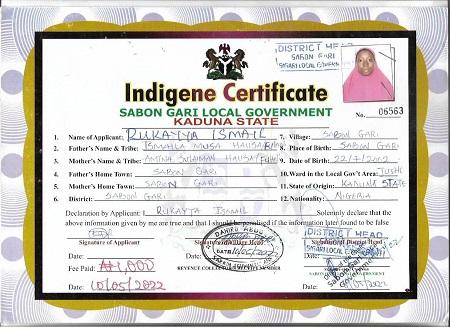 DISTRICT HEAD
SABON GARI
Indigene Certificate
SABON GARI LOCAL GOVERNMENT
KADUNA STATE
No. 06563
1. Name of Applicant: RUKAYYA ISMAIL
7. Village: SABON GARI
2. Father's Name & Tribe: ISMAILA MUSA HAUSA
8. Place of Birth: SABON GARI
3. Mother's Name & Tribe: AMINA SULAIMAN HAUSA
9. Date of Birth: 22/7/2002
4. Father's Home Town: SABON GARI
10. Ward in the Local Gov't Area:
5. Mother's Home Town: SABON GARI
11. State of Origin: KADUNA STATE
6. District: SABON GARI
12. Nationality: NIGERIA
Declaration by Applicant: I RUKAYYA ISMAIL Solemnly declare that the above
information given by me are true and that i should be penalised if the information later found to be false
Signature of Applicant
Signature of Village Head
Signature of District Head
DISTRICT HEAD
SABON GARI
Date:
Date: 10/05/2022
Date:
Fee Paid: ₦1,000
REVENUE COLLECTOR NUMBER
Date: 10/05/2022